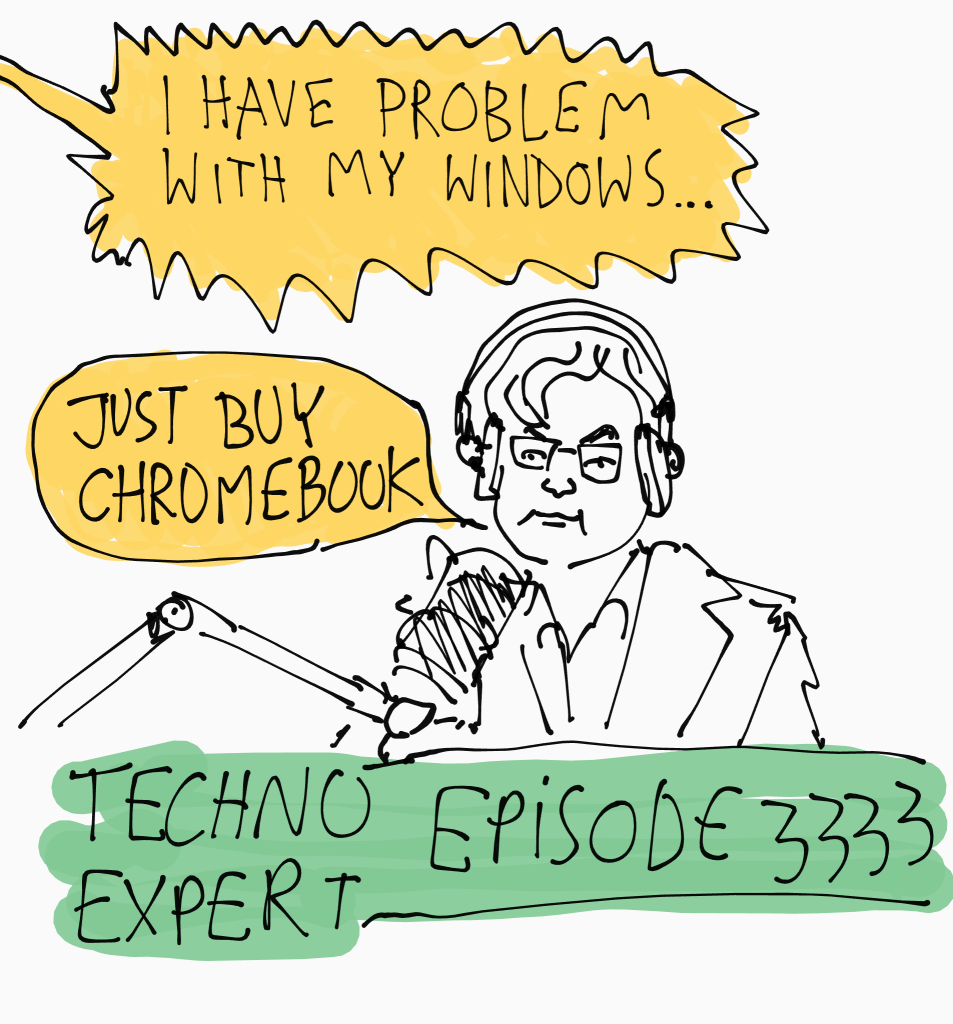 I HAVE PROBLEM
WITH MY WINDOWS...
JUST BUY
CHROMEBOOK
TECHNO
EXPERT
EPISODE 3333